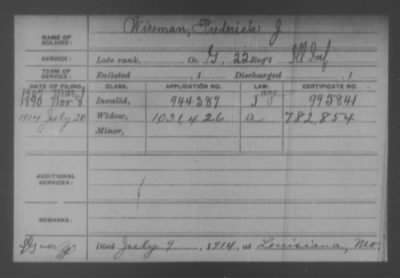 NAME OF SOLDIER: Wiseman, Frederick J.
SERVICE: Late rank, Co. G, 22 Reg't Ill Inf
TERM OF SERVICE: Enlisted , 1 Discharged , 1
DATE OF FILING. CLASS. APPLICATION NO. LAW. CERTIFICATE NO.
1890 Nov 8 Invalid, 944387 995841
1914 July 20 Widow, 1031426 a 782,854
Minor,
ADDITIONAL SERVICES:
REMARKS:
Died July 9, 1914, at Louisiana, Mo.